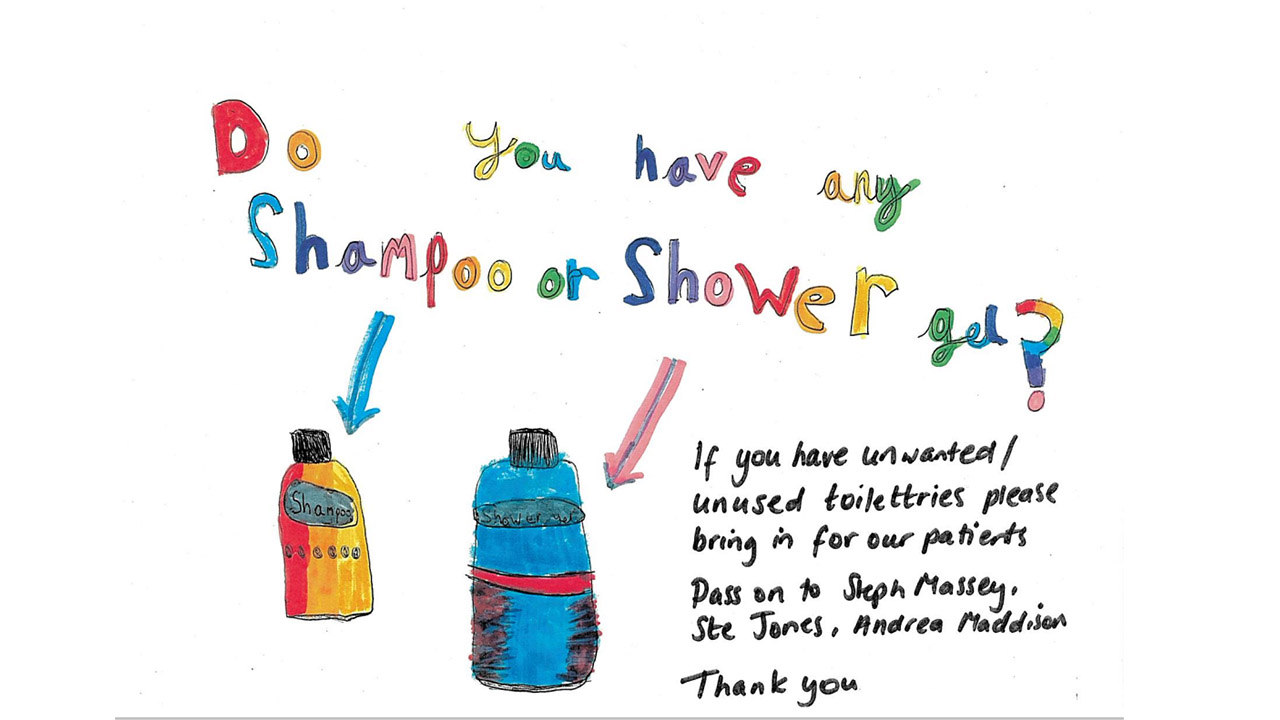 Do you have any
Shampoo or Shower gel?
Shampoo
Shower gel
If you have unwanted/
unused toilettries please
bring in for our patients
Pass on to Steph Massey,
Ste Jones, Andrea Maddison
Thank you